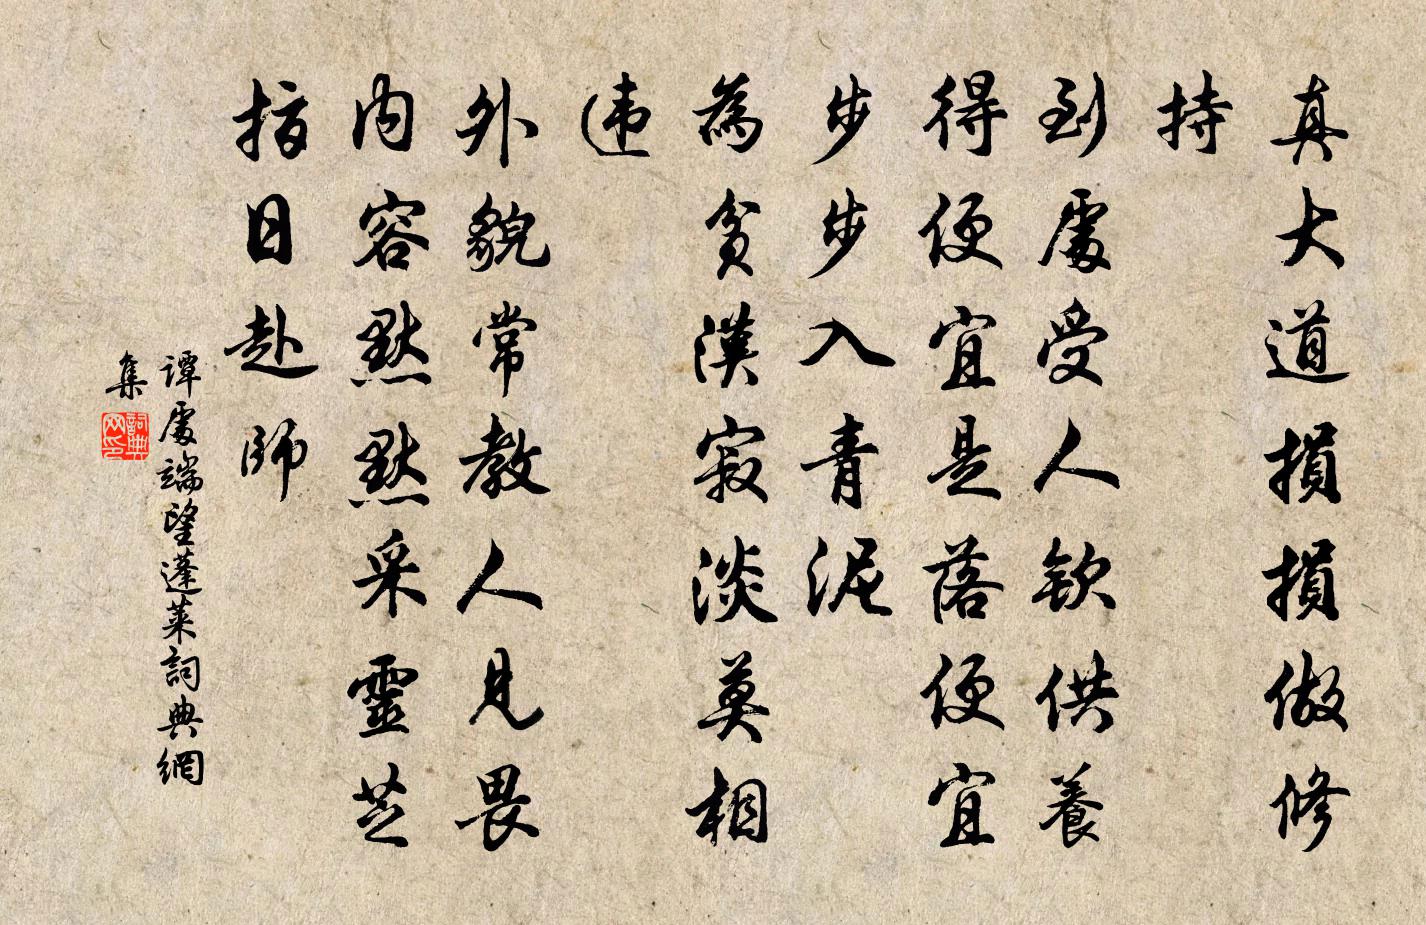 真大道損損做修
持
到處受人欽供養
得便宜是落便宜
步步入青泥
為貧漢寂淡莫相
违
外貌常教人見畏
内容黙黙采靈芝
指日赴師
谭處端望蓬莱詞典網
集
詞典
网印